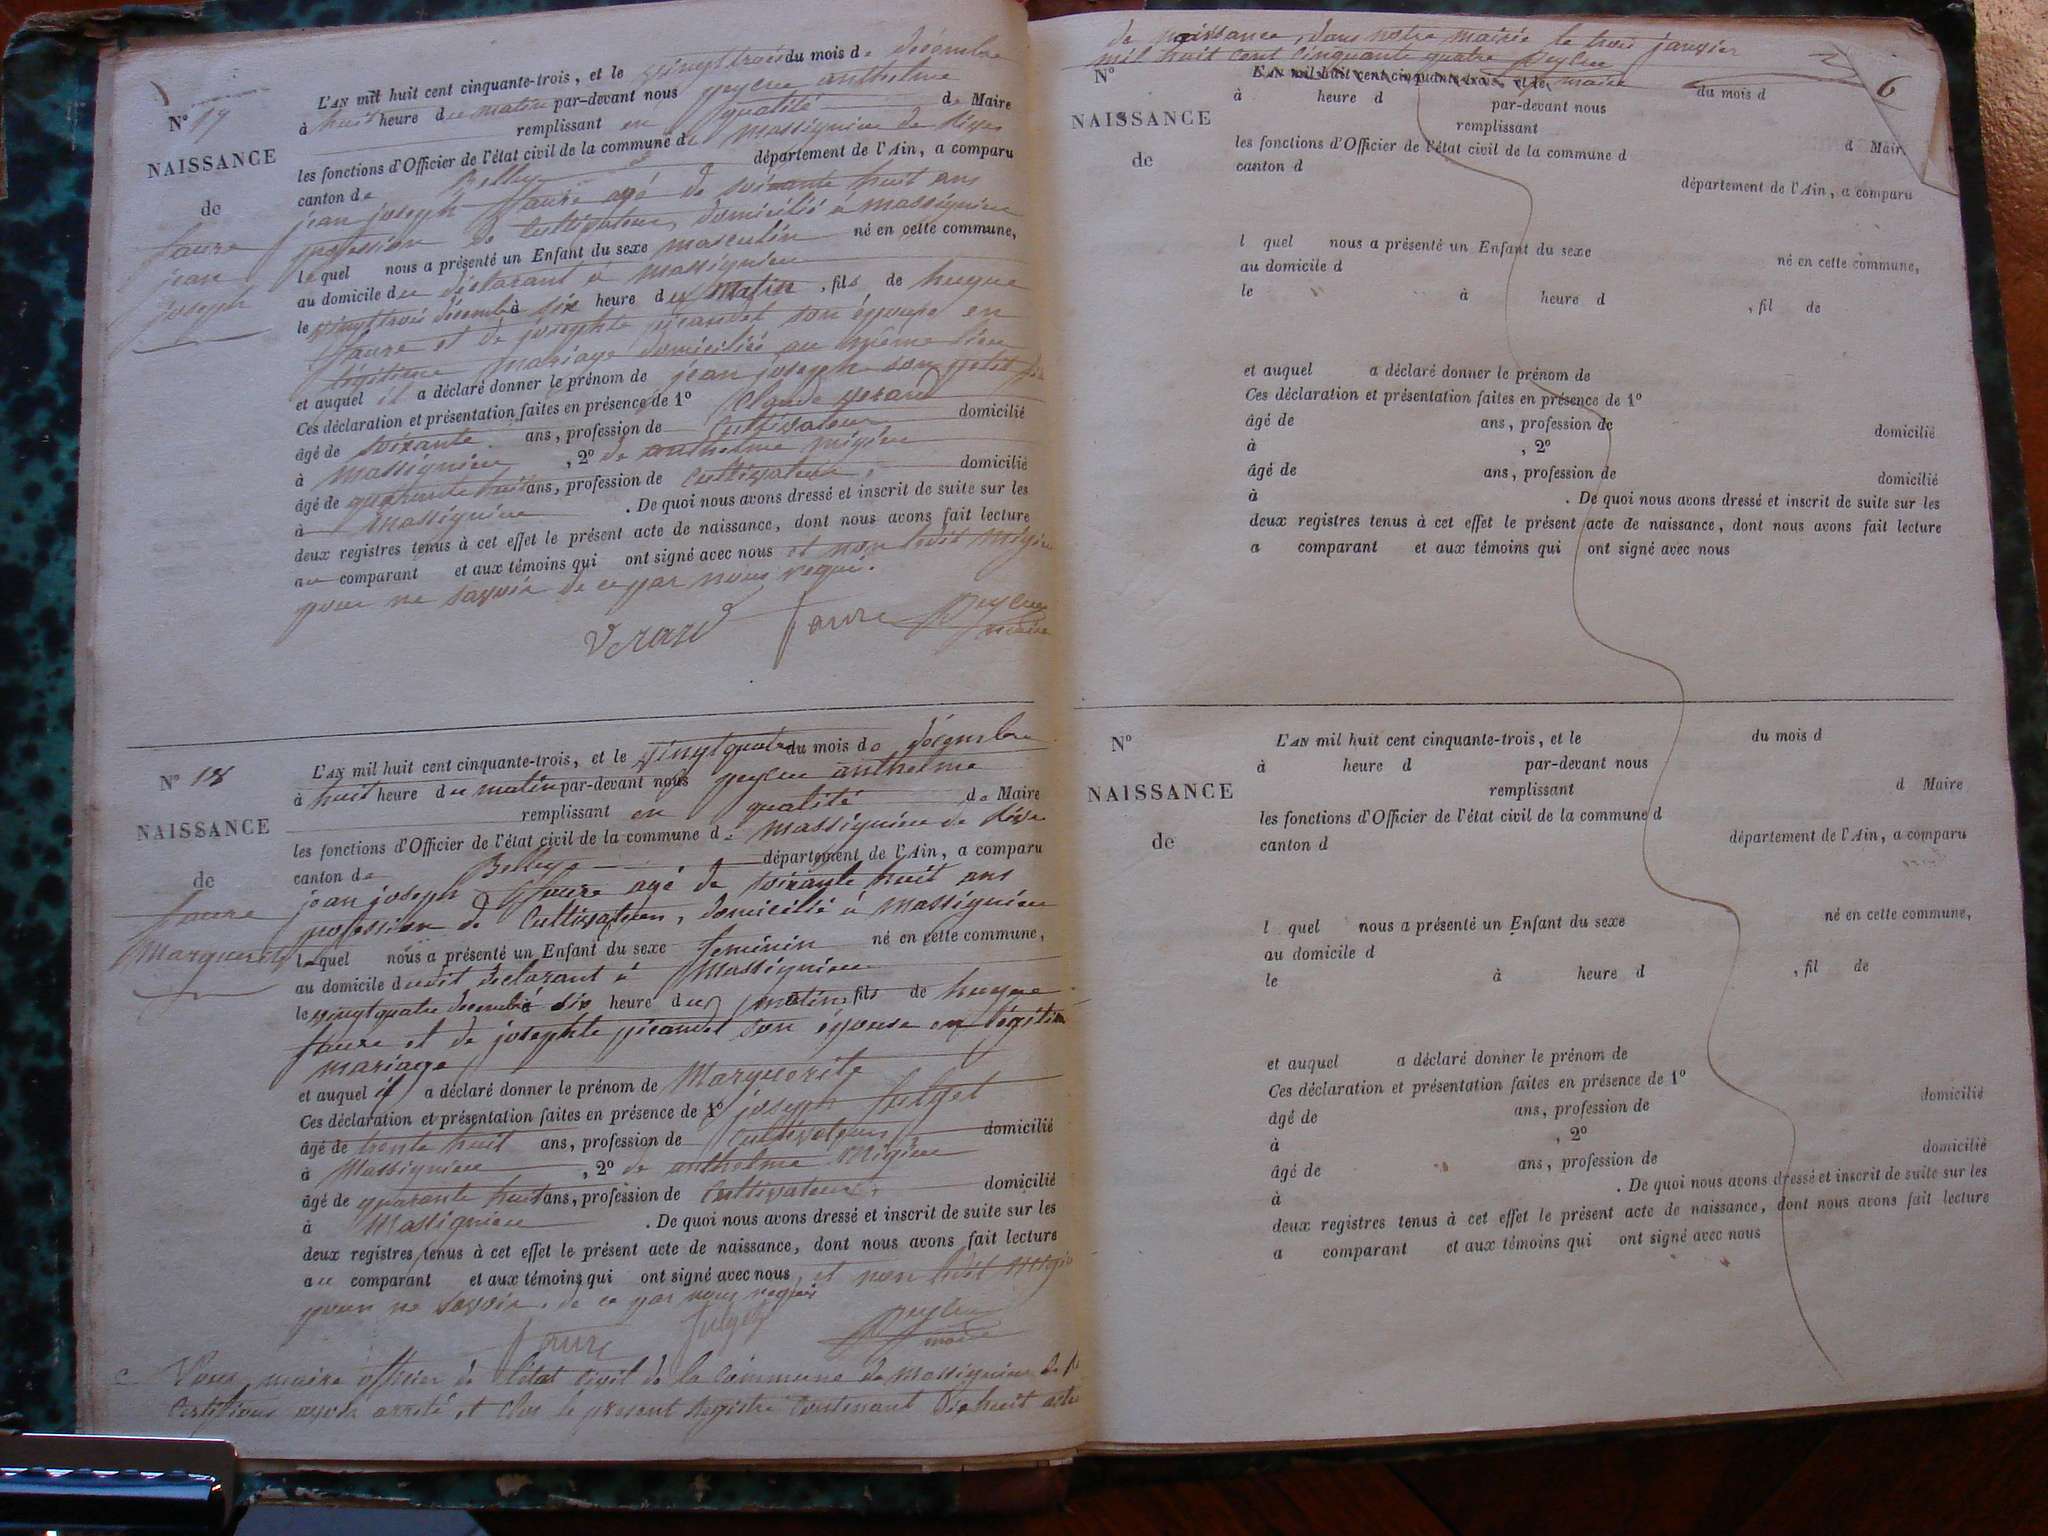 N° 17
NAISSANCE
de
faure
jean
joseph
L'AN mil huit cent cinquante-trois, et le vingt trois du mois de décembre
à huit heure du matin par-devant nous peycru anthelme
remplissant en qualité de Maire
les fonctions d'Officier de l'état civil de la commune de massignieu de rives
canton de Belley département de l'Ain, a comparu
jean joseph faure agé de soixante huit ans
profession de cultivateur, domicilié à massignieu
lequel nous a présenté un Enfant du sexe masculin né en cette commune,
au domicile du déclarant à massignieu
le vingt trois décembre à six heure du matin, fils de hugue
faure et de josephte picandet son épouse en
légitime mariage domiciliés au même lieu
et auquel il a déclaré donner le prénom de jean joseph son petit fils
Ces déclaration et présentation faites en présence de 1° Claude verand
âgé de soixante ans, profession de cultivateur domicilié
à massignieu, 2° de anthelme migieu
âgé de quarante huit ans, profession de cultivateur, domicilié
à massignieu. De quoi nous avons dressé et inscrit de suite sur les
deux registres tenus à cet effet le présent acte de naissance, dont nous avons fait lecture
au comparant et aux témoins qui ont signé avec nous et non ledit migieu
pour ne savoir de ce par nous requi.
Verand faure peycru
maire
N° 18
NAISSANCE
de
faure
Marguerite
L'AN mil huit cent cinquante-trois, et le vingt quatre du mois de décembre
à huit heure du matin par-devant nous peycru anthelme
remplissant en qualité de Maire
les fonctions d'Officier de l'état civil de la commune de massignieu de rive
canton de Belley département de l'Ain, a comparu
jean joseph faure agé de soixante huit ans
profession de cultivateur, domicilié à massignieu
lequel nous a présenté un Enfant du sexe feminin né en cette commune,
au domicile dudit déclarant à Massignieu
le vingt quatre decembre six heure du matin, fils de hugue
faure et de josephte picandet son épouse en légitime
mariage
et auquel il a déclaré donner le prénom de Marguerite
Ces déclaration et présentation faites en présence de 1° joseph fulget
âgé de trente huit ans, profession de cultivateur, domicilié
à Massignieu, 2° de anthelme Migieu
âgé de quarante huit ans, profession de cultivateur, domicilié
à Massignieu. De quoi nous avons dressé et inscrit de suite sur les
deux registres tenus à cet effet le présent acte de naissance, dont nous avons fait lecture
au comparant et aux témoins qui ont signé avec nous, et non ledit migieu
pour ne savoir, de ce par nous requis
faure fulget peycru
maire
Nous, maire officier de l'état civil de la commune de Massignieu de R
Certifions avoir arreté et clos le present registre contenant dix huit actes
de naissance, dans notre mairie le trois janvier
mil huit cent cinquante quatre peycru
maire
6
N°
NAISSANCE
de
L'AN mil huit cent cinquante-trois, et le du mois d
à heure d par-devant nous
remplissant d Mair
les fonctions d'Officier de l'état civil de la commune d
canton d département de l'Ain, a comparu
l quel nous a présenté un Enfant du sexe né en cette commune,
au domicile d
le à heure d , fil de
et auquel a déclaré donner le prénom de
Ces déclaration et présentation faites en présence de 1°
âgé de ans, profession de domicilié
à , 2°
âgé de ans, profession de domicilié
à . De quoi nous avons dressé et inscrit de suite sur les
deux registres tenus à cet effet le présent acte de naissance, dont nous avons fait lecture
a comparant et aux témoins qui ont signé avec nous
N°
NAISSANCE
de
L'AN mil huit cent cinquante-trois, et le du mois d
à heure d par-devant nous
remplissant d Maire
les fonctions d'Officier de l'état civil de la commune d
canton d département de l'Ain, a comparu
l quel nous a présenté un Enfant du sexe né en cette commune,
au domicile d
le à heure d , fil de
et auquel a déclaré donner le prénom de
Ces déclaration et présentation faites en présence de 1°
âgé de ans, profession de domicilié
à , 2°
âgé de ans, profession de domicilié
à . De quoi nous avons dressé et inscrit de suite sur les
deux registres tenus à cet effet le présent acte de naissance, dont nous avons fait lecture
a comparant et aux témoins qui ont signé avec nous